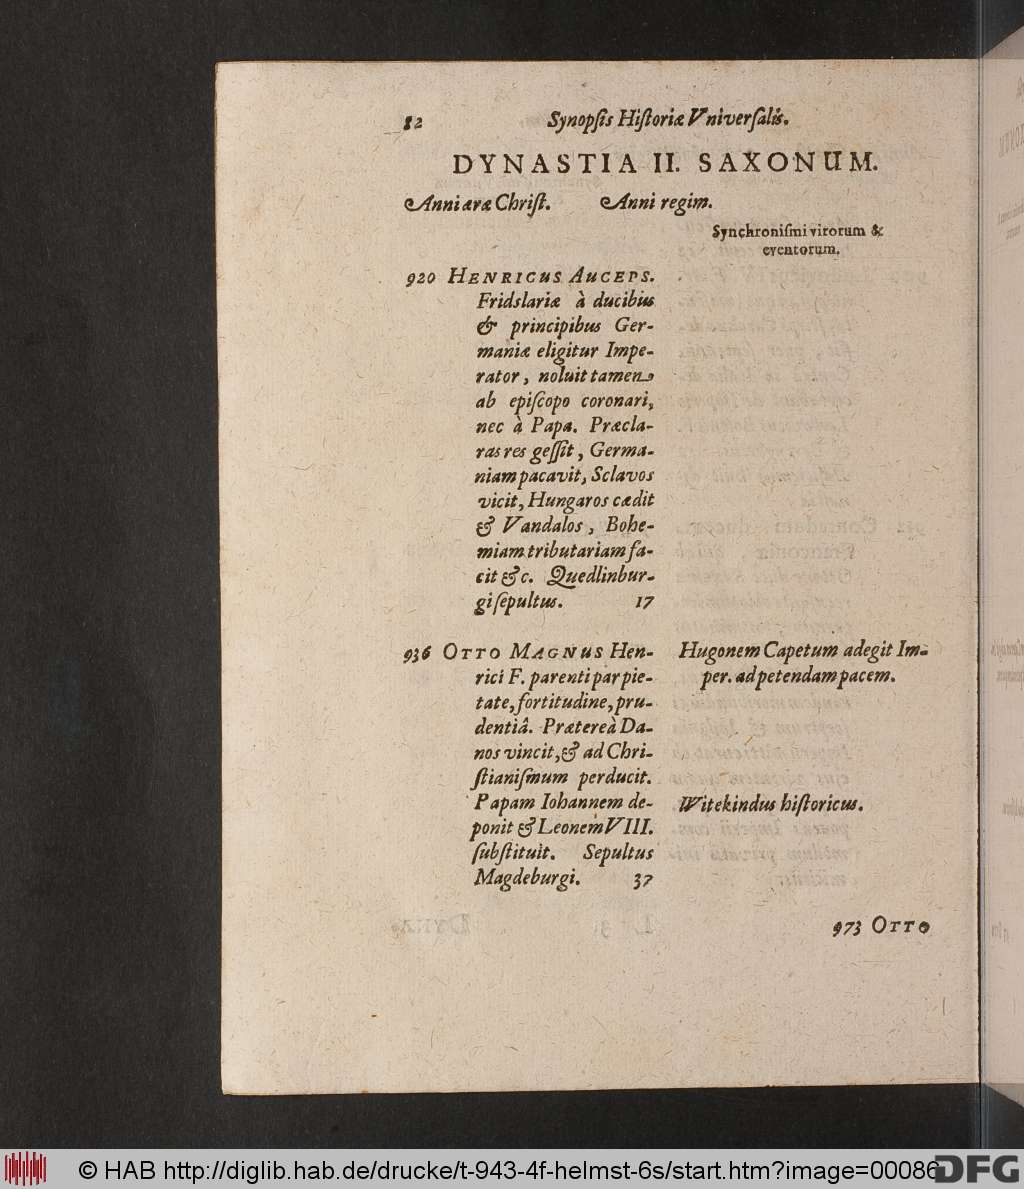 82 Synopsis Historiæ Vniversalis.
DYNASTIA II. SAXONUM.
Anni æræ Christ. Anni regim.
Synchronismi virorum &
eventorum.
920 HENRICUS AUCEPS.
Fridslariæ à ducibus
& principibus Ger-
maniæ eligitur Impe-
rator, noluit tamen
ab episcopo coronari,
nec à Papa. Præcla-
ras res gessit, Germa-
niam pacavit, Sclavos
vicit, Hungaros cædit
& Vandalos, Bohe-
miam tributariam fa-
cit &c. Quedlinbur-
gi sepultus. 17
936 OTTO MAGNUS Hen-
rici F. parenti par pie-
tate, fortitudine, pru-
dentiâ. Prætereà Da-
nos vincit, & ad Chri-
stianismum perducit.
Papam Iohannem de-
ponit & Leonem VIII.
substituit. Sepultus
Magdeburgi. 37
Hugonem Capetum adegit Im-
per. ad petendam pacem.
Witekindus historicus.
973 OTTO
© HAB http://diglib.hab.de/drucke/t-943-4f-helmst-6s/start.htm?image=00086
DFG